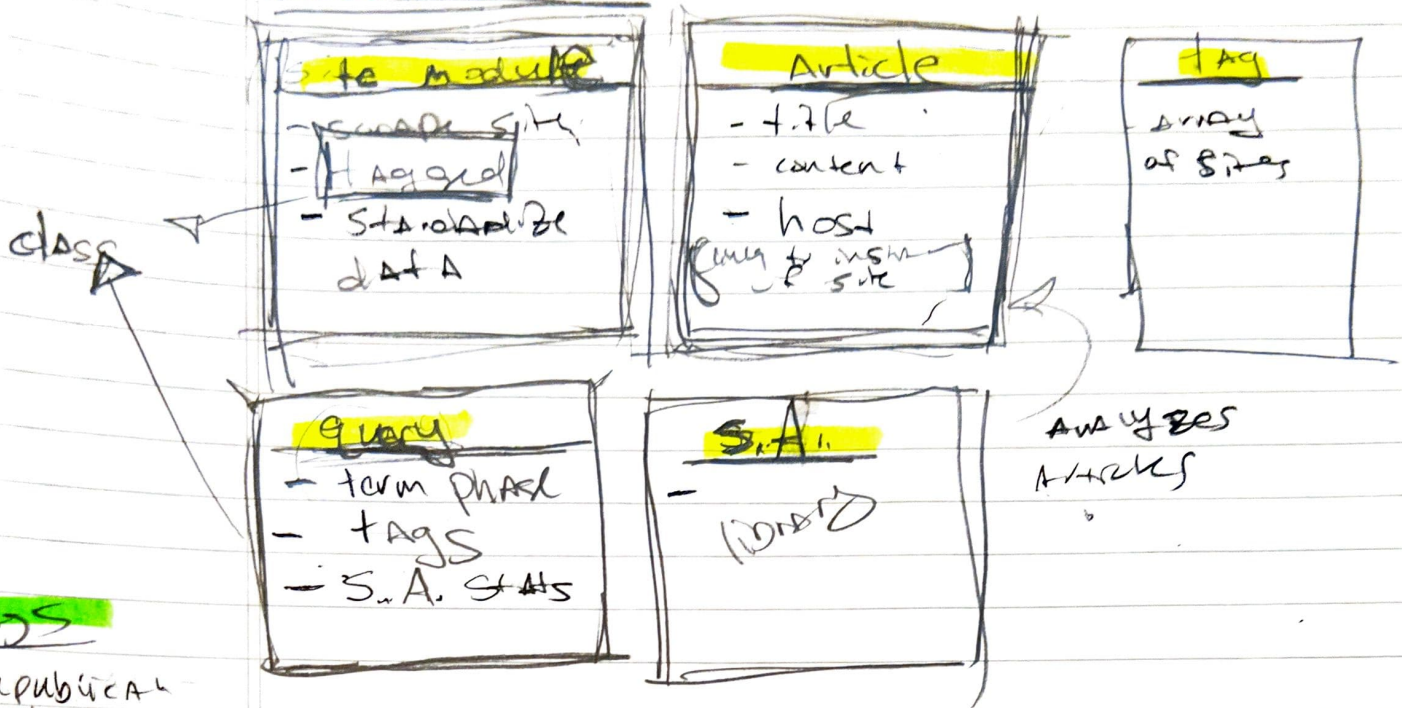 Site module
- scrape site
- tagged
- standardize
data
class
Article
- title
- content
- host
site
tag
array
of sites
query
- term phase
- tags
- S.A. stats
S.A.
-
library
Analyzes
Articles